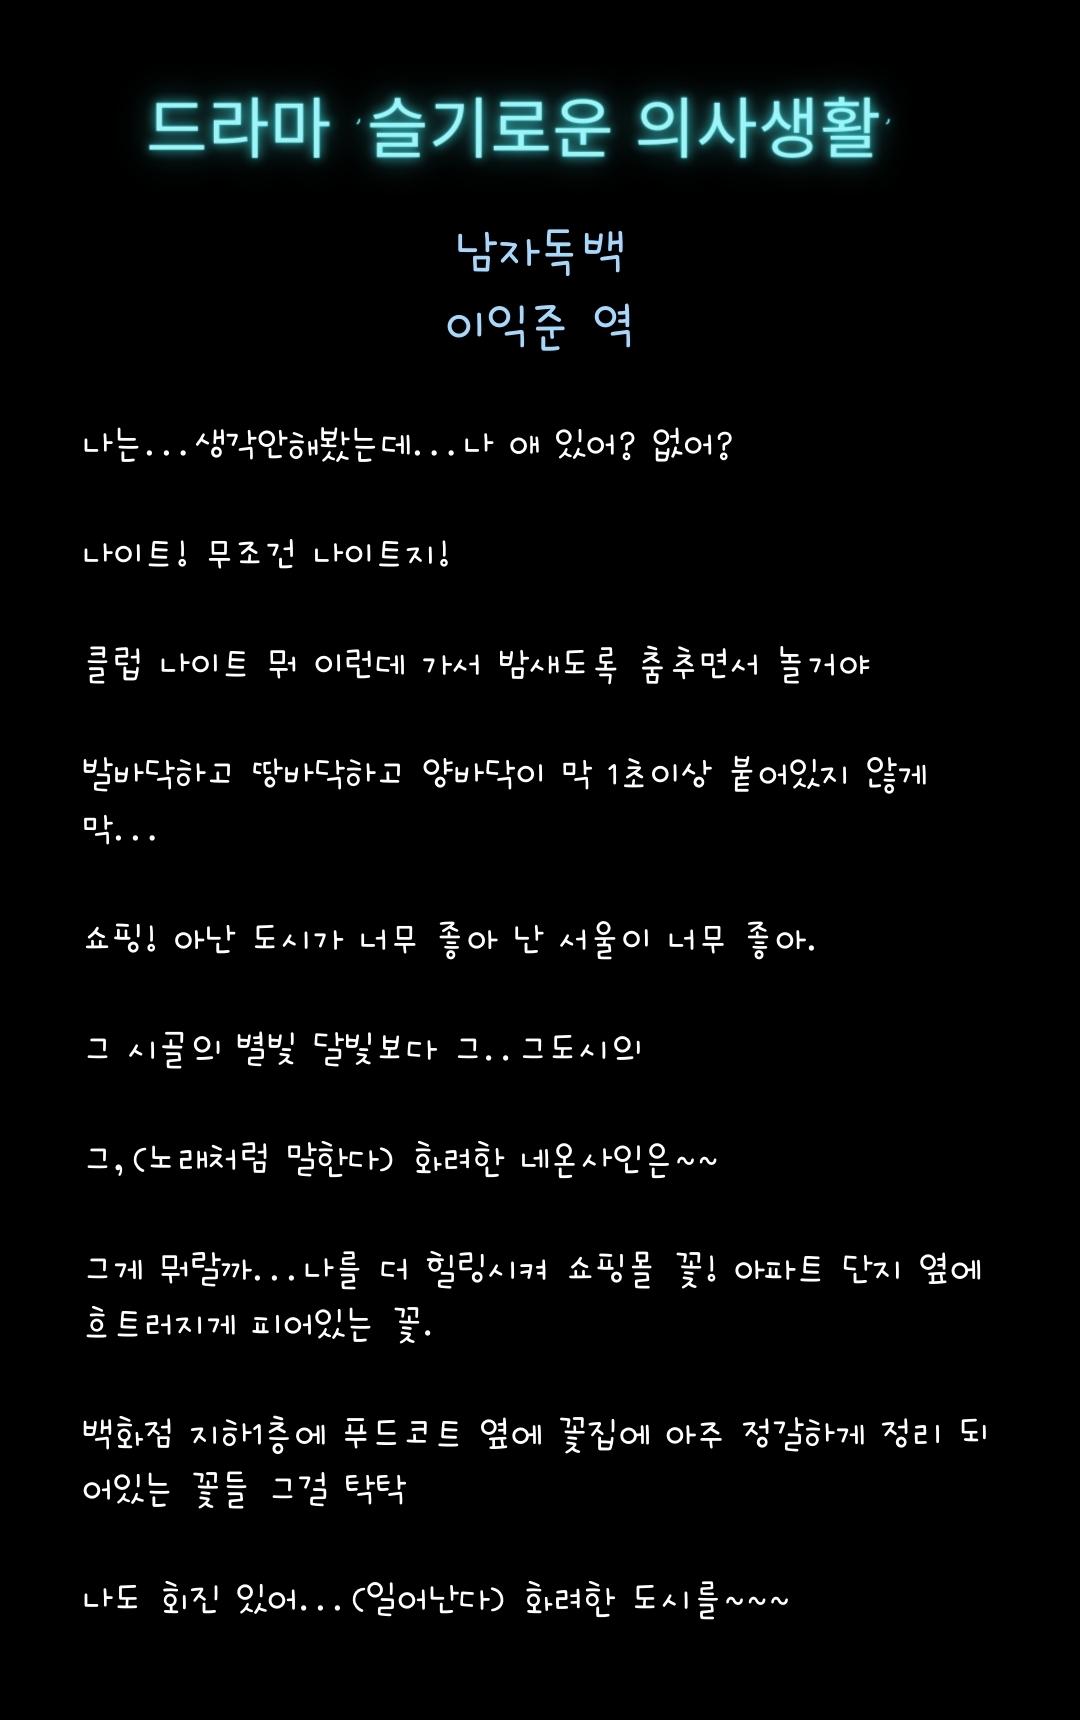 드라마 '슬기로운 의사생활'
남자독백
이익준 역
나는...생각안해봤는데...나 애 있어? 없어?
나이트! 무조건 나이트지!
클럽 나이트 뭐 이런데 가서 밤새도록 춤추면서 놀거야
발바닥하고 땅바닥하고 양바닥이 막 1초이상 붙어있지 않게
막...
쇼핑! 아난 도시가 너무 좋아 난 서울이 너무 좋아.
그 시골의 별빛 달빛보다 그..그도시의
그,(노래처럼 말한다) 화려한 네온사인은~~
그게 뭐랄까...나를 더 힐링시켜 쇼핑몰 꽃! 아파트 단지 옆에
흐트러지게 피어있는 꽃.
백화점 지하1층에 푸드코트 옆에 꽃집에 아주 정갈하게 정리 되
어있는 꽃들 그걸 탁탁
나도 회진 있어...(일어난다) 화려한 도시를~~~